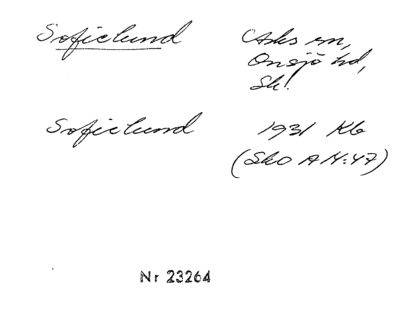 Sofielund Asks sn,
Onsjö hd,
Sk!
Sofielund 1931 Kb
(SkO A N:47)
Nr 23264